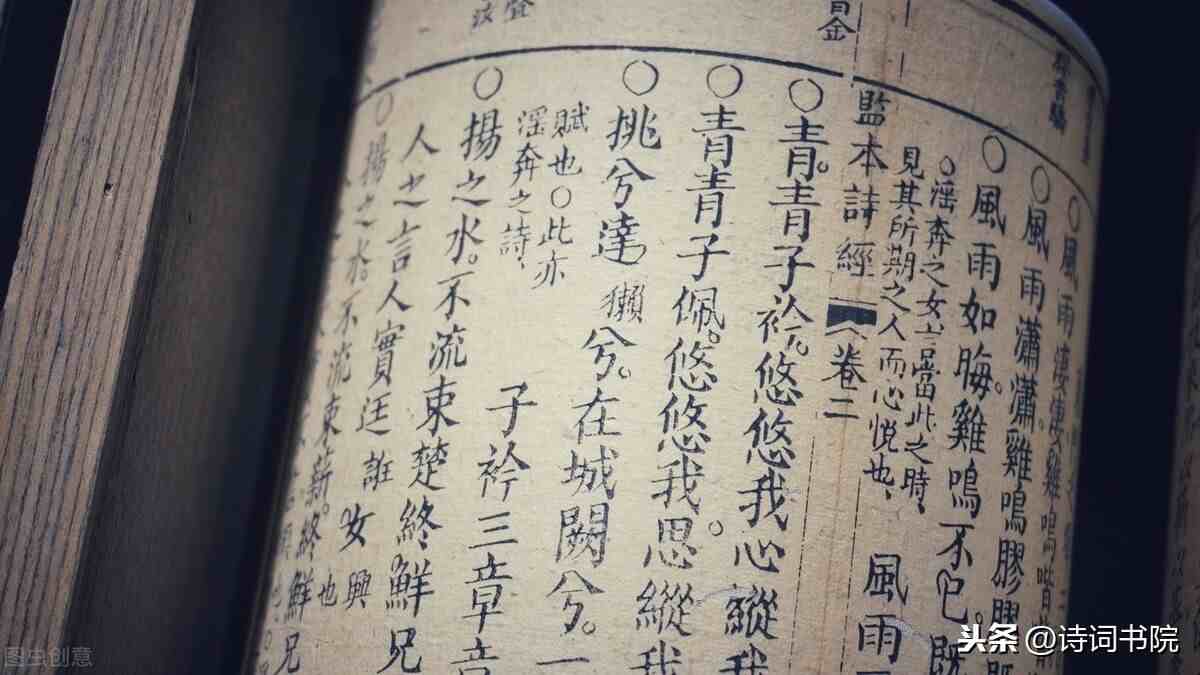 ○風雨淒淒雞鳴喈
○風雨瀟瀟。雞鳴膠膠
○風雨如晦。雞鳴不已。既
○淫奔之女言當此之時、
見其所期之人而心悅也、
風雨
監本詩經
卷二
○青。青青子衿。悠悠我心縱我
○青青子佩。悠悠我思。縱我
○挑兮達獺兮。在城闕兮。一
賦也○此亦
淫奔之詩、
子衿三章章
○揚之水。不流束楚終鮮兄
人之言人實迋誑女
興
也
○揚之水。不流束薪。終鮮兄
头条 @诗词书院
图虫创意